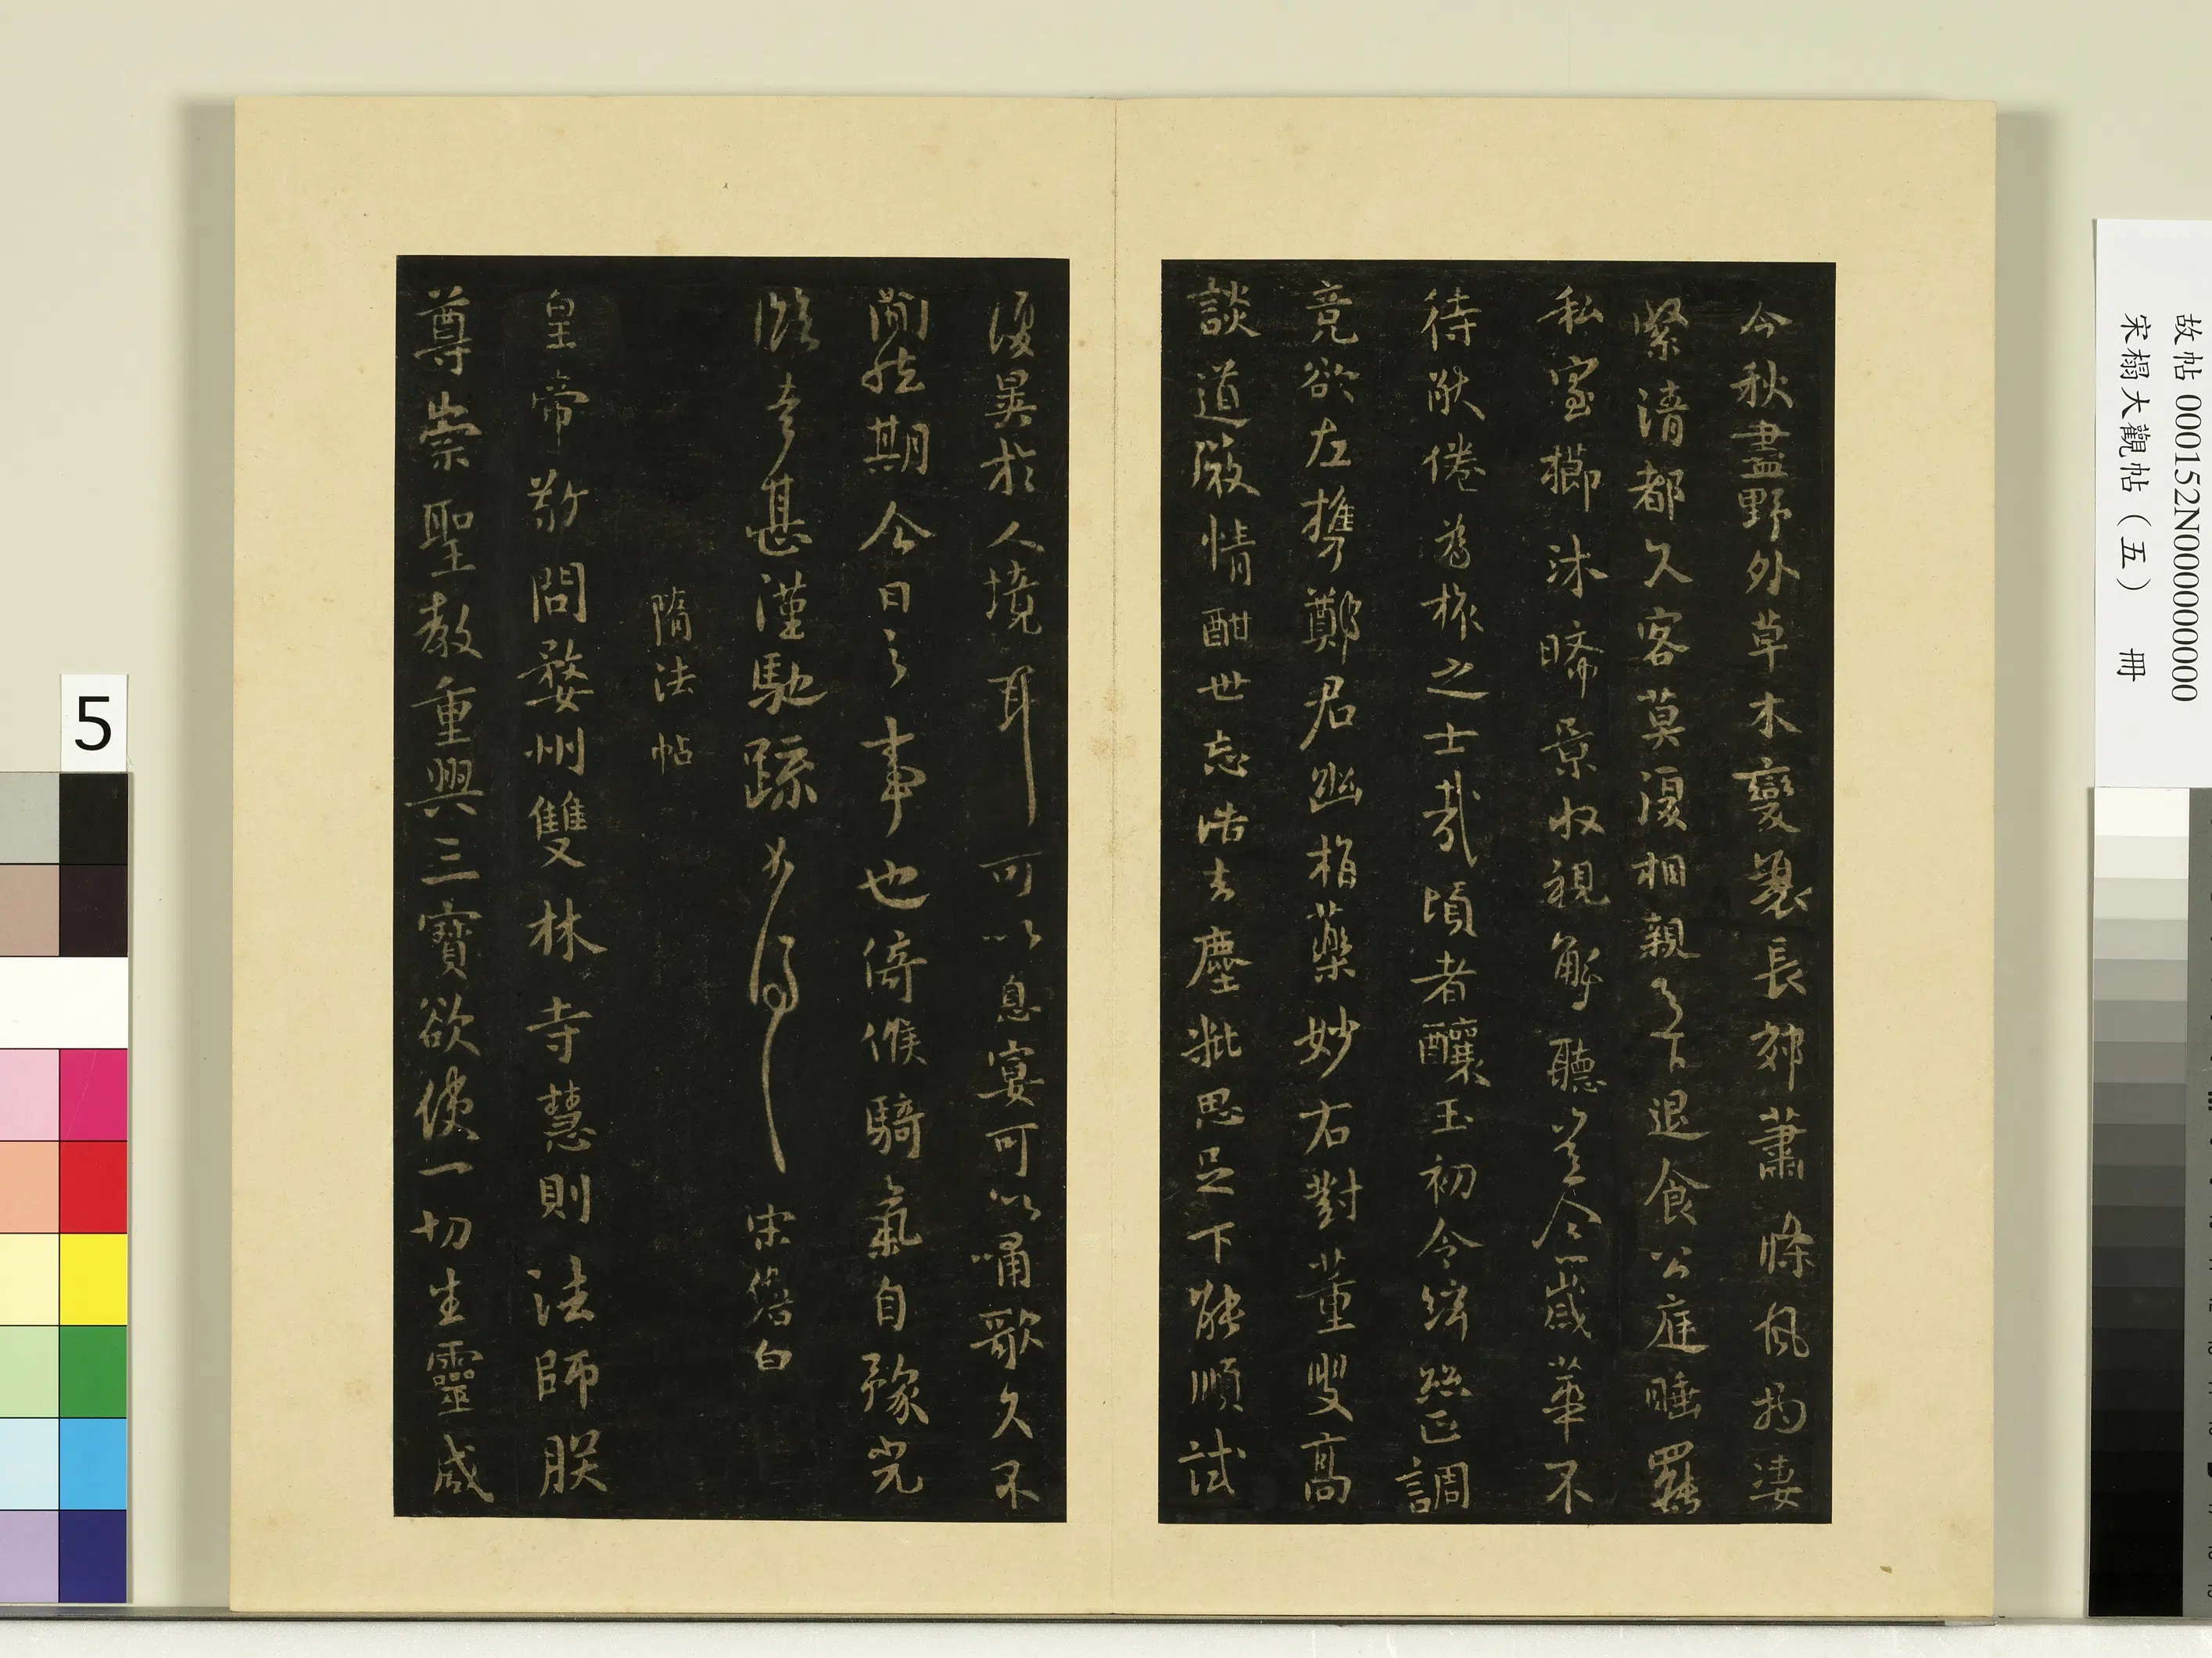 今秋盡野外草木變衰長郊蕭條風物淒
緊清都久客莫復相親足下退食公庭睡罷
私室櫛沐晞景收視解聽豈念歲華不
待猒倦為旅之士哉頃者釀玉初冷絲正調
竟欲左攜鄭君幽栢蘂妙右對董叟高
談道嚴情酣世忘浩去塵粃思足下能順試
復昇於人境耳可以息宴可以嘯歌久不
簡然期今日之事也倚候騎氣自豫光
臨幸甚謹馳疏 宋儋白
隋法帖
皇帝敬問婺州雙林寺慧則法師朕
尊崇聖教重興三寶欲使一切生靈咸
故帖 000152N000000000
宋榻大觀帖（五） 冊
5